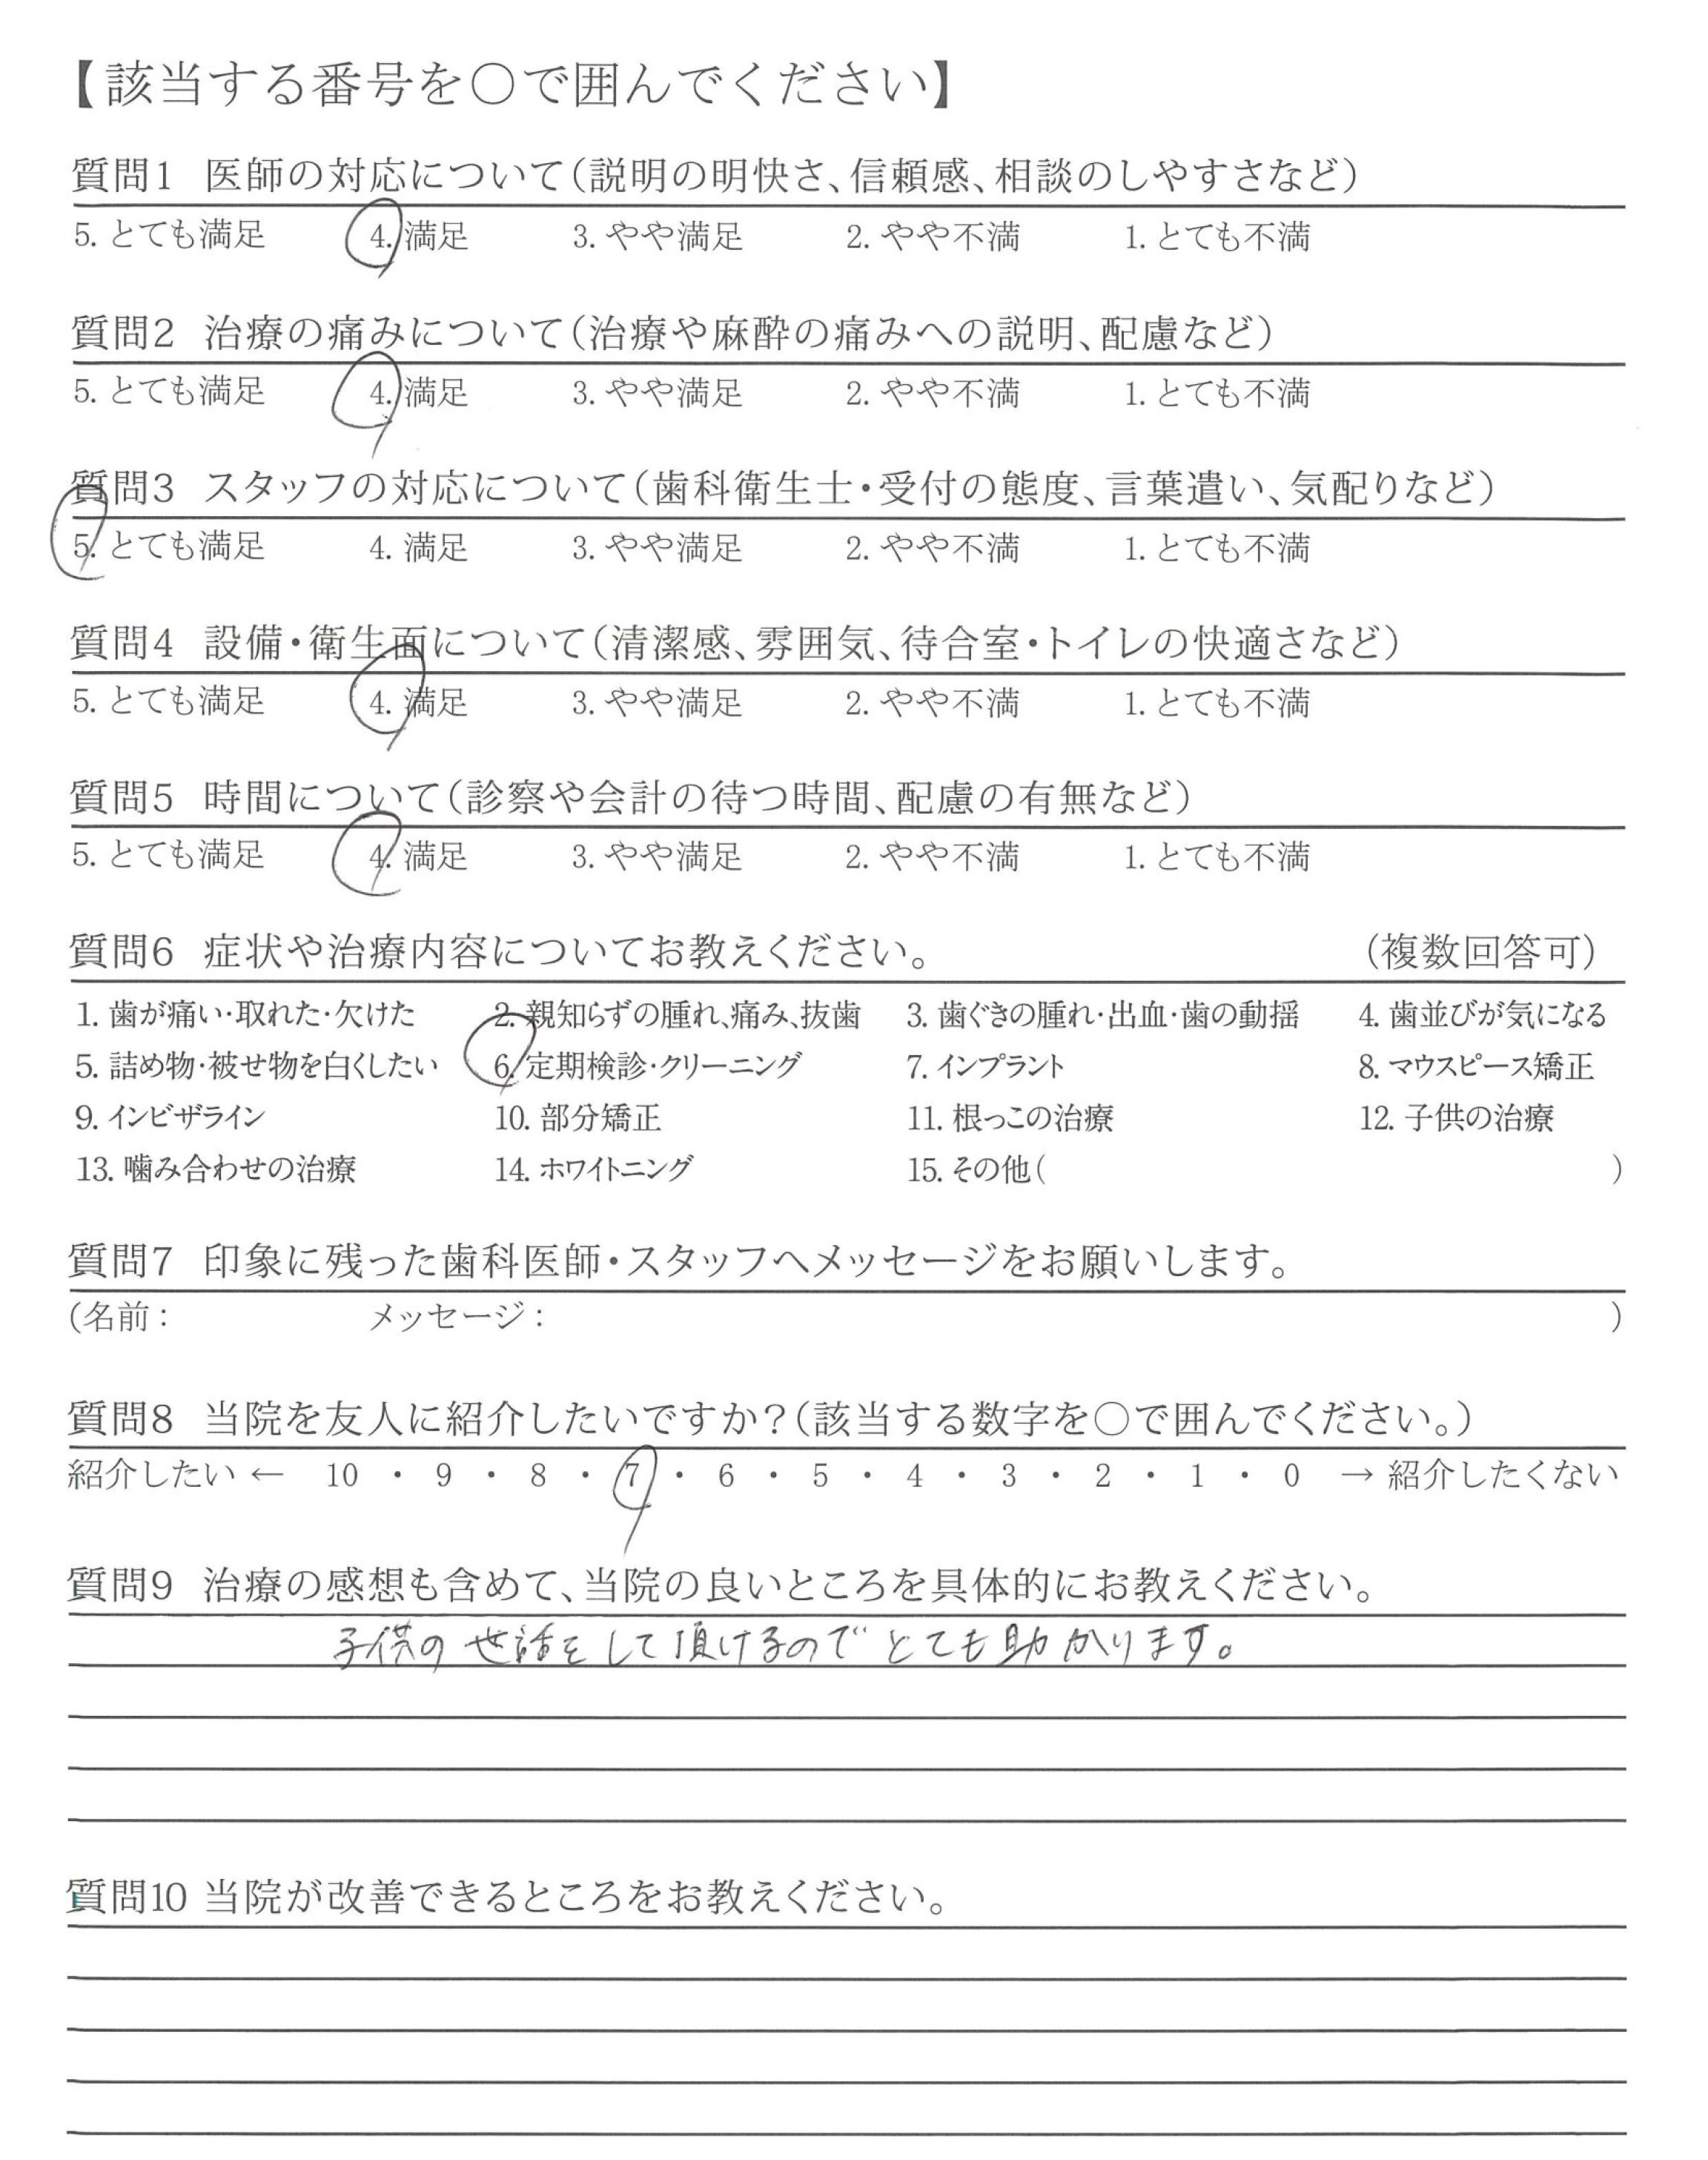 【該当する番号を○で囲んでください】
質問1 医師の対応について(説明の明快さ、信頼感、相談のしやすさなど)
5. とても満足 4. 満足 3. やや満足 2. やや不満 1. とても不満
質問2 治療の痛みについて(治療や麻酔の痛みへの説明、配慮など)
5. とても満足 4. 満足 3. やや満足 2. やや不満 1. とても不満
質問3 スタッフの対応について(歯科衛生士・受付の態度、言葉遣い、気配りなど)
5. とても満足 4. 満足 3. やや満足 2. やや不満 1. とても不満
質問4 設備・衛生面について(清潔感、雰囲気、待合室・トイレの快適さなど)
5. とても満足 4. 満足 3. やや満足 2. やや不満 1. とても不満
質問5 時間について(診察や会計の待つ時間、配慮の有無など)
5. とても満足 4. 満足 3. やや満足 2. やや不満 1. とても不満
質問6 症状や治療内容についてお教えください。 (複数回答可)
1. 歯が痛い・取れた・欠けた 2. 親知らずの腫れ、痛み、抜歯 3. 歯ぐきの腫れ・出血・歯の動揺 4. 歯並びが気になる
5. 詰め物・被せ物を白くしたい 6. 定期検診・クリーニング 7. インプラント 8. マウスピース矯正
9. インビザライン 10. 部分矯正 11. 根っこの治療 12. 子供の治療
13. 噛み合わせの治療 14. ホワイトニング 15. その他( )
質問7 印象に残った歯科医師・スタッフへメッセージをお願いします。
(名前: メッセージ: )
質問8 当院を友人に紹介したいですか?(該当する数字を○で囲んでください。)
紹介したい ← 10 ・ 9 ・ 8 ・ 7 ・ 6 ・ 5 ・ 4 ・ 3 ・ 2 ・ 1 ・ 0 → 紹介したくない
質問9 治療の感想も含めて、当院の良いところを具体的にお教えください。
子供の世話をして頂けるのでとても助かります。
質問10 当院が改善できるところをお教えください。